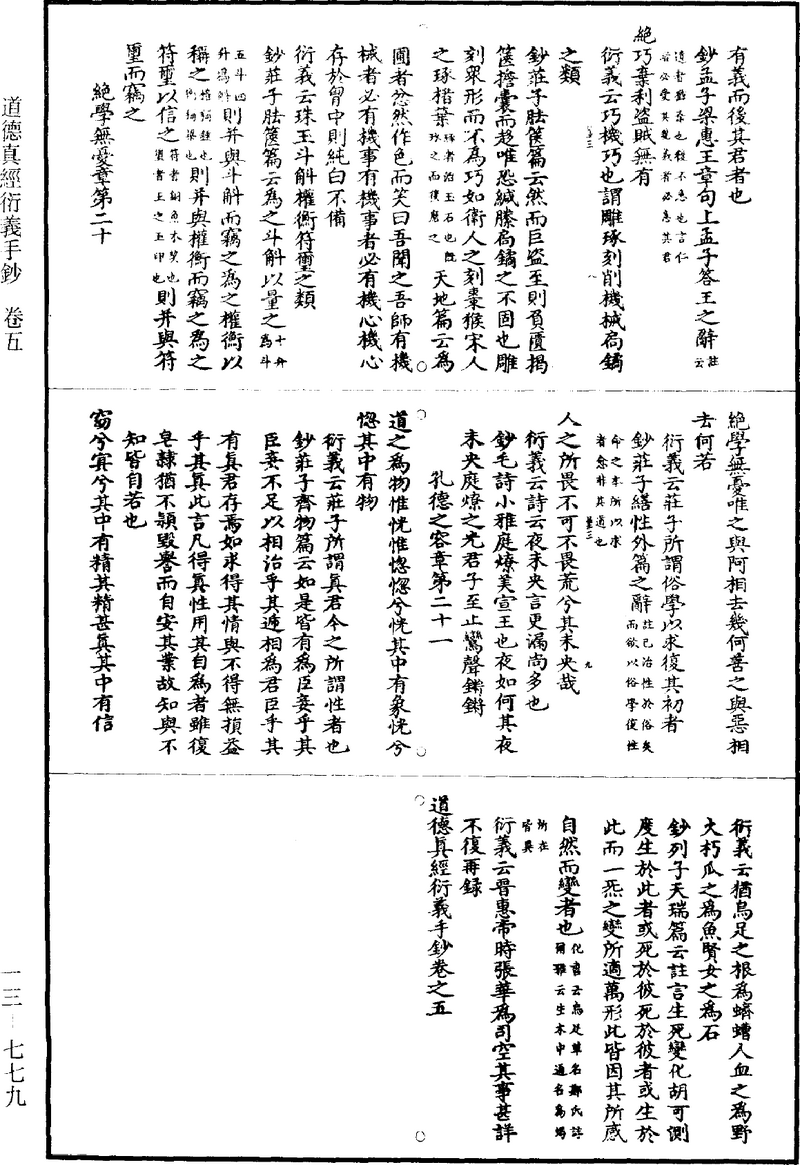 有義而後其君者也
鈔孟子梁惠王章句上孟子答王之辭註云
道者猶棄也後不急也言仁
者必愛其親義者必急其君
絕巧棄利盜賊無有
衍義云巧機巧也謂雕琢刻削機械扃鐍
之類
鈔莊子胠篋篇云然而巨盜至則負匱揭
篋擔囊而趍唯恐緘縢扃鐍之不固也雕
刻衆形而不為巧如衛人之刻棗猴宋人
之琢楮葉
琢者治玉石也既
琢之而復磨之
天地篇云為
圃者忿然作色而笑曰吾聞之吾師有機
械者必有機事有機事者必有機心機心
存於胷中則純白不備
衍義云珠玉斗斛權衡符璽之類
鈔莊子胠篋篇云為之斗斛以量之
十升為斗
五斗四
升為斛
則并與斗斛而竊之為之權衡以
稱之
則并與權衡而竊之為之
符璽以信之
符者銅魚木契也
璽者王之玉印也
則并與符
璽而竊之
絕學無憂章第二十
絕學無憂唯之與阿相去幾何善之與惡相
去何若
衍義云莊子所謂俗學以求復其初者
鈔莊子繕性外篇之辭
註已治性於俗矣
而欲以俗學復性
命之本所以求
者愈非其道也
人之所畏不可不畏荒兮其未央哉
衍義云詩云夜未央言更漏尚多也
鈔毛詩小雅庭燎美宣王也夜如何其夜
未央庭燎之光君子至止鸞聲鏘鏘
孔德之容章第二十一
道之為物惟恍惟惚惚兮恍其中有象恍兮
惚其中有物
衍義云莊子所謂真君今之所謂性者也
鈔莊子齊物篇云如是皆有為臣妾乎其
臣妾不足以相治乎其遞相為君臣乎其
有真君存焉如求得其情與不得無損益
乎其真此言凡得真性用其自為者雖復
皂隸猶不顧毀譽而自安其業故知與不
知皆自若也
窈兮冥兮其中有精其精甚真其中有信
衍義云猶烏足之根為蠐螬人血之為野
火朽瓜之為魚賢女之為石
鈔列子天瑞篇云註言生死變化胡可測
度生於此者或死於彼死於彼者或生於
此而一炁之變所適萬形此皆因其所感
自然而變者也
化書云烏足草名鄭氏註
爾雅云生木中通名為蝎
所在
皆異
衍義云晉惠帝時張華為司空其事甚詳
不復再録
道德真經衍義手鈔卷之五
道德真經衍義手鈔　卷五
一三—七七九